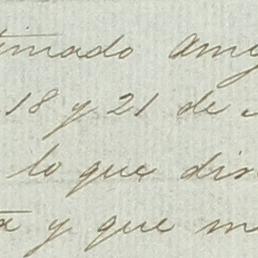 timado Amig
18 y 21 de
lo que dir
y que m